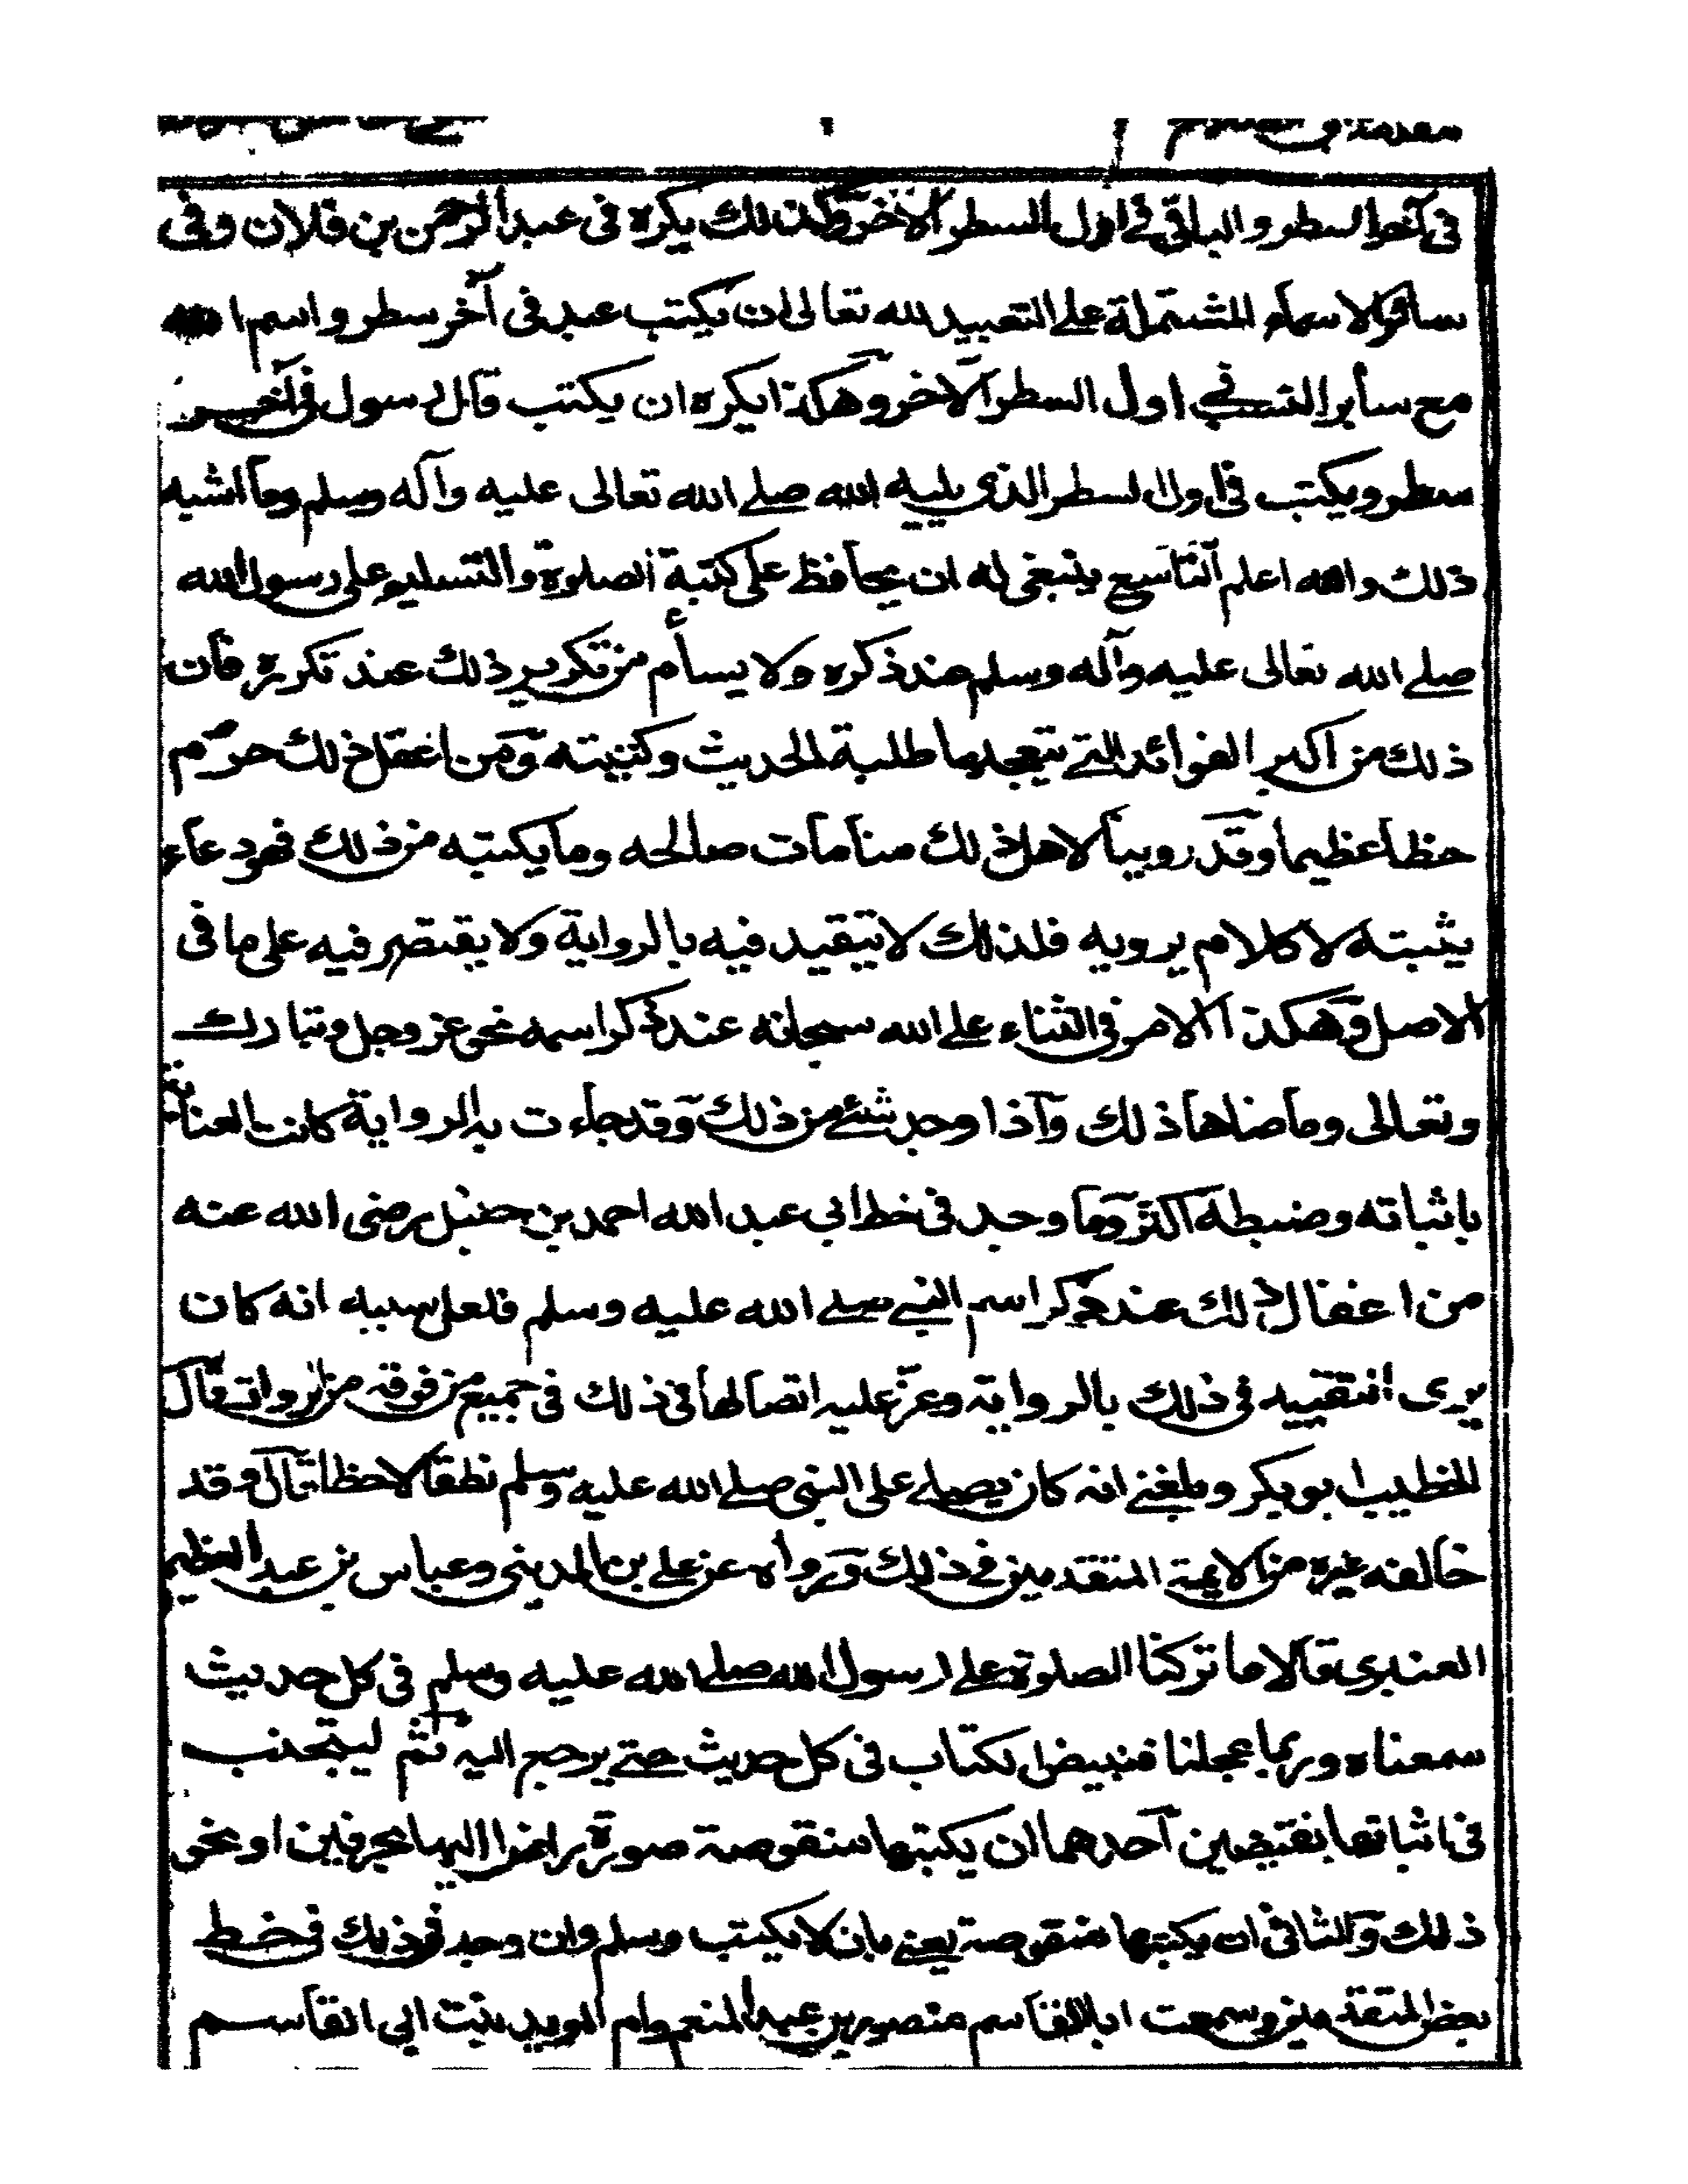 في آخر السطر والباقي في اول السطر الآخر وكذلك يكره في عبد الرحمن بن فلان وفي
سائر الاسماء المشتملة على التعبيد لله تعالى ان يكتب عبد في آخر سطر واسم الله
مع سأبر النسب في اول السطر الآخر وهكذا يكره ان يكتب قال رسول في آخر
سطر ويكتب في اول السطر الذي يليه الله صلے الله تعالى عليه وآله وسلم وما اشبه
ذلك والله اعلم التاسع ينبغي له ان يحافظ على كتبة الصلوة والتسليم على رسول الله
صلے الله تعالى عليه وآله وسلم عند ذكره ولا يسأم من تكرير ذلك عند تكرره فان
ذلك من اكبر الفوائد التي يتعجلها طلبة الحديث وكتبته ومن اغفل ذلك حرم
حظا عظيما وقد روينا لاهل ذلك منامات صالحه وما يكتبه من ذلك فهو دعاء
يثبته لا كلام يرويه فلذلك لا يتقيد فيه بالرواية ولا يقتصر فيه على ما في
الاصل وهكذا الامر في الثناء على الله سبحانه عند ذكر اسمه نحو عز وجل وتبارك
وتعالى وما ضاها ذلك وآذا وجد شئ من ذلك وقد جاءت به الرواية كانت العناية
باثباته وضبطه اكثر وما وجد في خط ابي عبد الله احمد بن حنبل رضى الله عنه
من اغفال ذلك عند ذكر اسم النبي صلے الله عليه وسلم فلعل سببه انه كان
يرى التقييد في ذلك بالرواية وعز عليه اتصالها في ذلك في جميع من فوقه من الرواة قال
الخطيب ابو بكر وبلغني انه كان يصلے على النبي صلے الله عليه وسلم نطقا لا خطا قال وقد
خالفه غيره من الايمة المتقدمين في ذلك وروأه عن علي بن المديني وعباس بن عبد العظيم
العنبري قالا ما تركنا الصلوة على رسول الله صلے الله عليه وسلم في كل حديث
سمعناه وربما عجلنا فنبيض لكتاب في كل حديث حتى يرجع اليه ثم ليتجنب
في اثباتها نقيضين آحدهما ان يكتبها منقوصة صورة رامزا اليها بحرفين او نحو
ذلك والثاني ان يكتبها منقوصة يعني بان لا يكتب وسلم وان وجد في ذلك في خط
بعض المتقدمين وسمعت ابا القاسم منصور بن عبد المنعم وام المويد بنت ابي القاسم